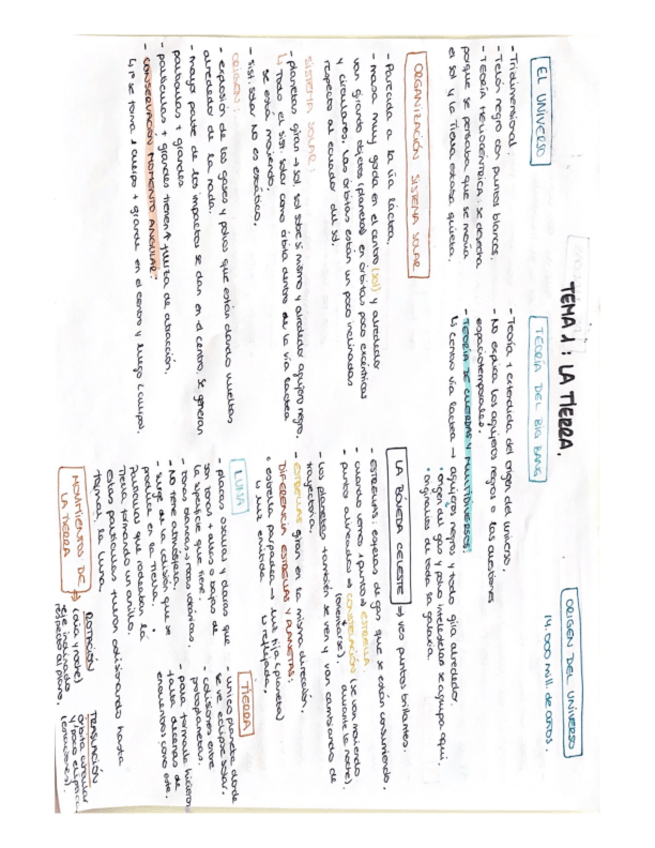 TEMA 1: LA TIERRA.
EL UNIVERSO
- Tridimensional.
- Telón negro con puntos blancos.
- Teoría Heliocéntrica: se desecha
porque se pensaba que se movía
el sol y la Tierra estaba quieta.
TEORÍA DEL BIG BANG
- Teoría + extendida del origen del universo.
- No explica los agujeros negros o las cuestiones
espaciotemporales.
- TEORÍA DE CUERDAS Y MULTIDIVERSOS:
↳ centro vía láctea → agujeros negros y todo gira alrededor.
• origen al gas y polvo interestelar se agrupa aquí.
• originarios de toda la galaxia.
ORIGEN DEL UNIVERSO
14.000 mill de años.
ORGANIZACIÓN SISTEMA SOLAR
- Parecida a la vía láctea.
- masa muy gorda en el centro (sol) y alrededor
van girando objetos (planetas) en órbitas poco excéntricas
y circulares. Las órbitas están un poco inclinadas
respecto al ecuador del sol.
SISTEMA SOLAR:
- planetas giran → sol, sol sobre si mismo y alrededor agujero negro.
↳ Todo el sis. solar como órbita dentro de la vía láctea
se está moviendo.
- sist. solar no es estático.
ORIGEN:
- explosión de los gases y polvo que están dando vueltas
alrededor de la nada.
- mayor parte de los impactos se dan en el centro, se generan
partículas + grandes
- partículas + grandes tienen ↑ fuerza de atracción.
- CONSERVACIÓN MOMENTO ANGULAR:
↳ 1º se forma 1 cuerpo + grande en el centro y luego cuerpos.
LA BÓVEDA CELESTE → ves puntos brillantes.
- ESTRELLAS: esferas de gas que se están consumiendo.
- cuando vemos 1 punto → ESTRELLA.
- puntos alineados → CONSTELACIÓN (se van moviendo
(orientarse). durante la noche).
- los planetas también se ven y van cambiando de
trayectoria.
- ESTRELLAS giran en la misma dirección.
DIFERENCIA ESTRELLAS Y PLANETAS:
• estrella parpadea → luz fija (planeta)
↳ luz emitida. ↳ reflejada.
LUNA
- placas oscuras y claras que
son zonas + altas o bajas de
la superficie que tiene.
- zonas blancas → rocas volcánicas.
- NO tiene atmósfera.
- surge de la colisión que se
produce en la Tierra.
partículas que rodeaban la
Tierra formando un anillo.
Estas partículas fueron colisionando hasta
formar la luna.
TIERRA
- único planeta donde
se ve eclipse solar.
- colisiones entre
protoplanetas.
- para formarla hicieron
falta decenas de
encuentros como este.
MOVIMIENTOS DE
LA TIERRA →
ROTACIÓN
(día y noche)
eje inclinado
respecto al plano.
TRASLACIÓN
órbita circular
y/poco elíptica
(estaciones).